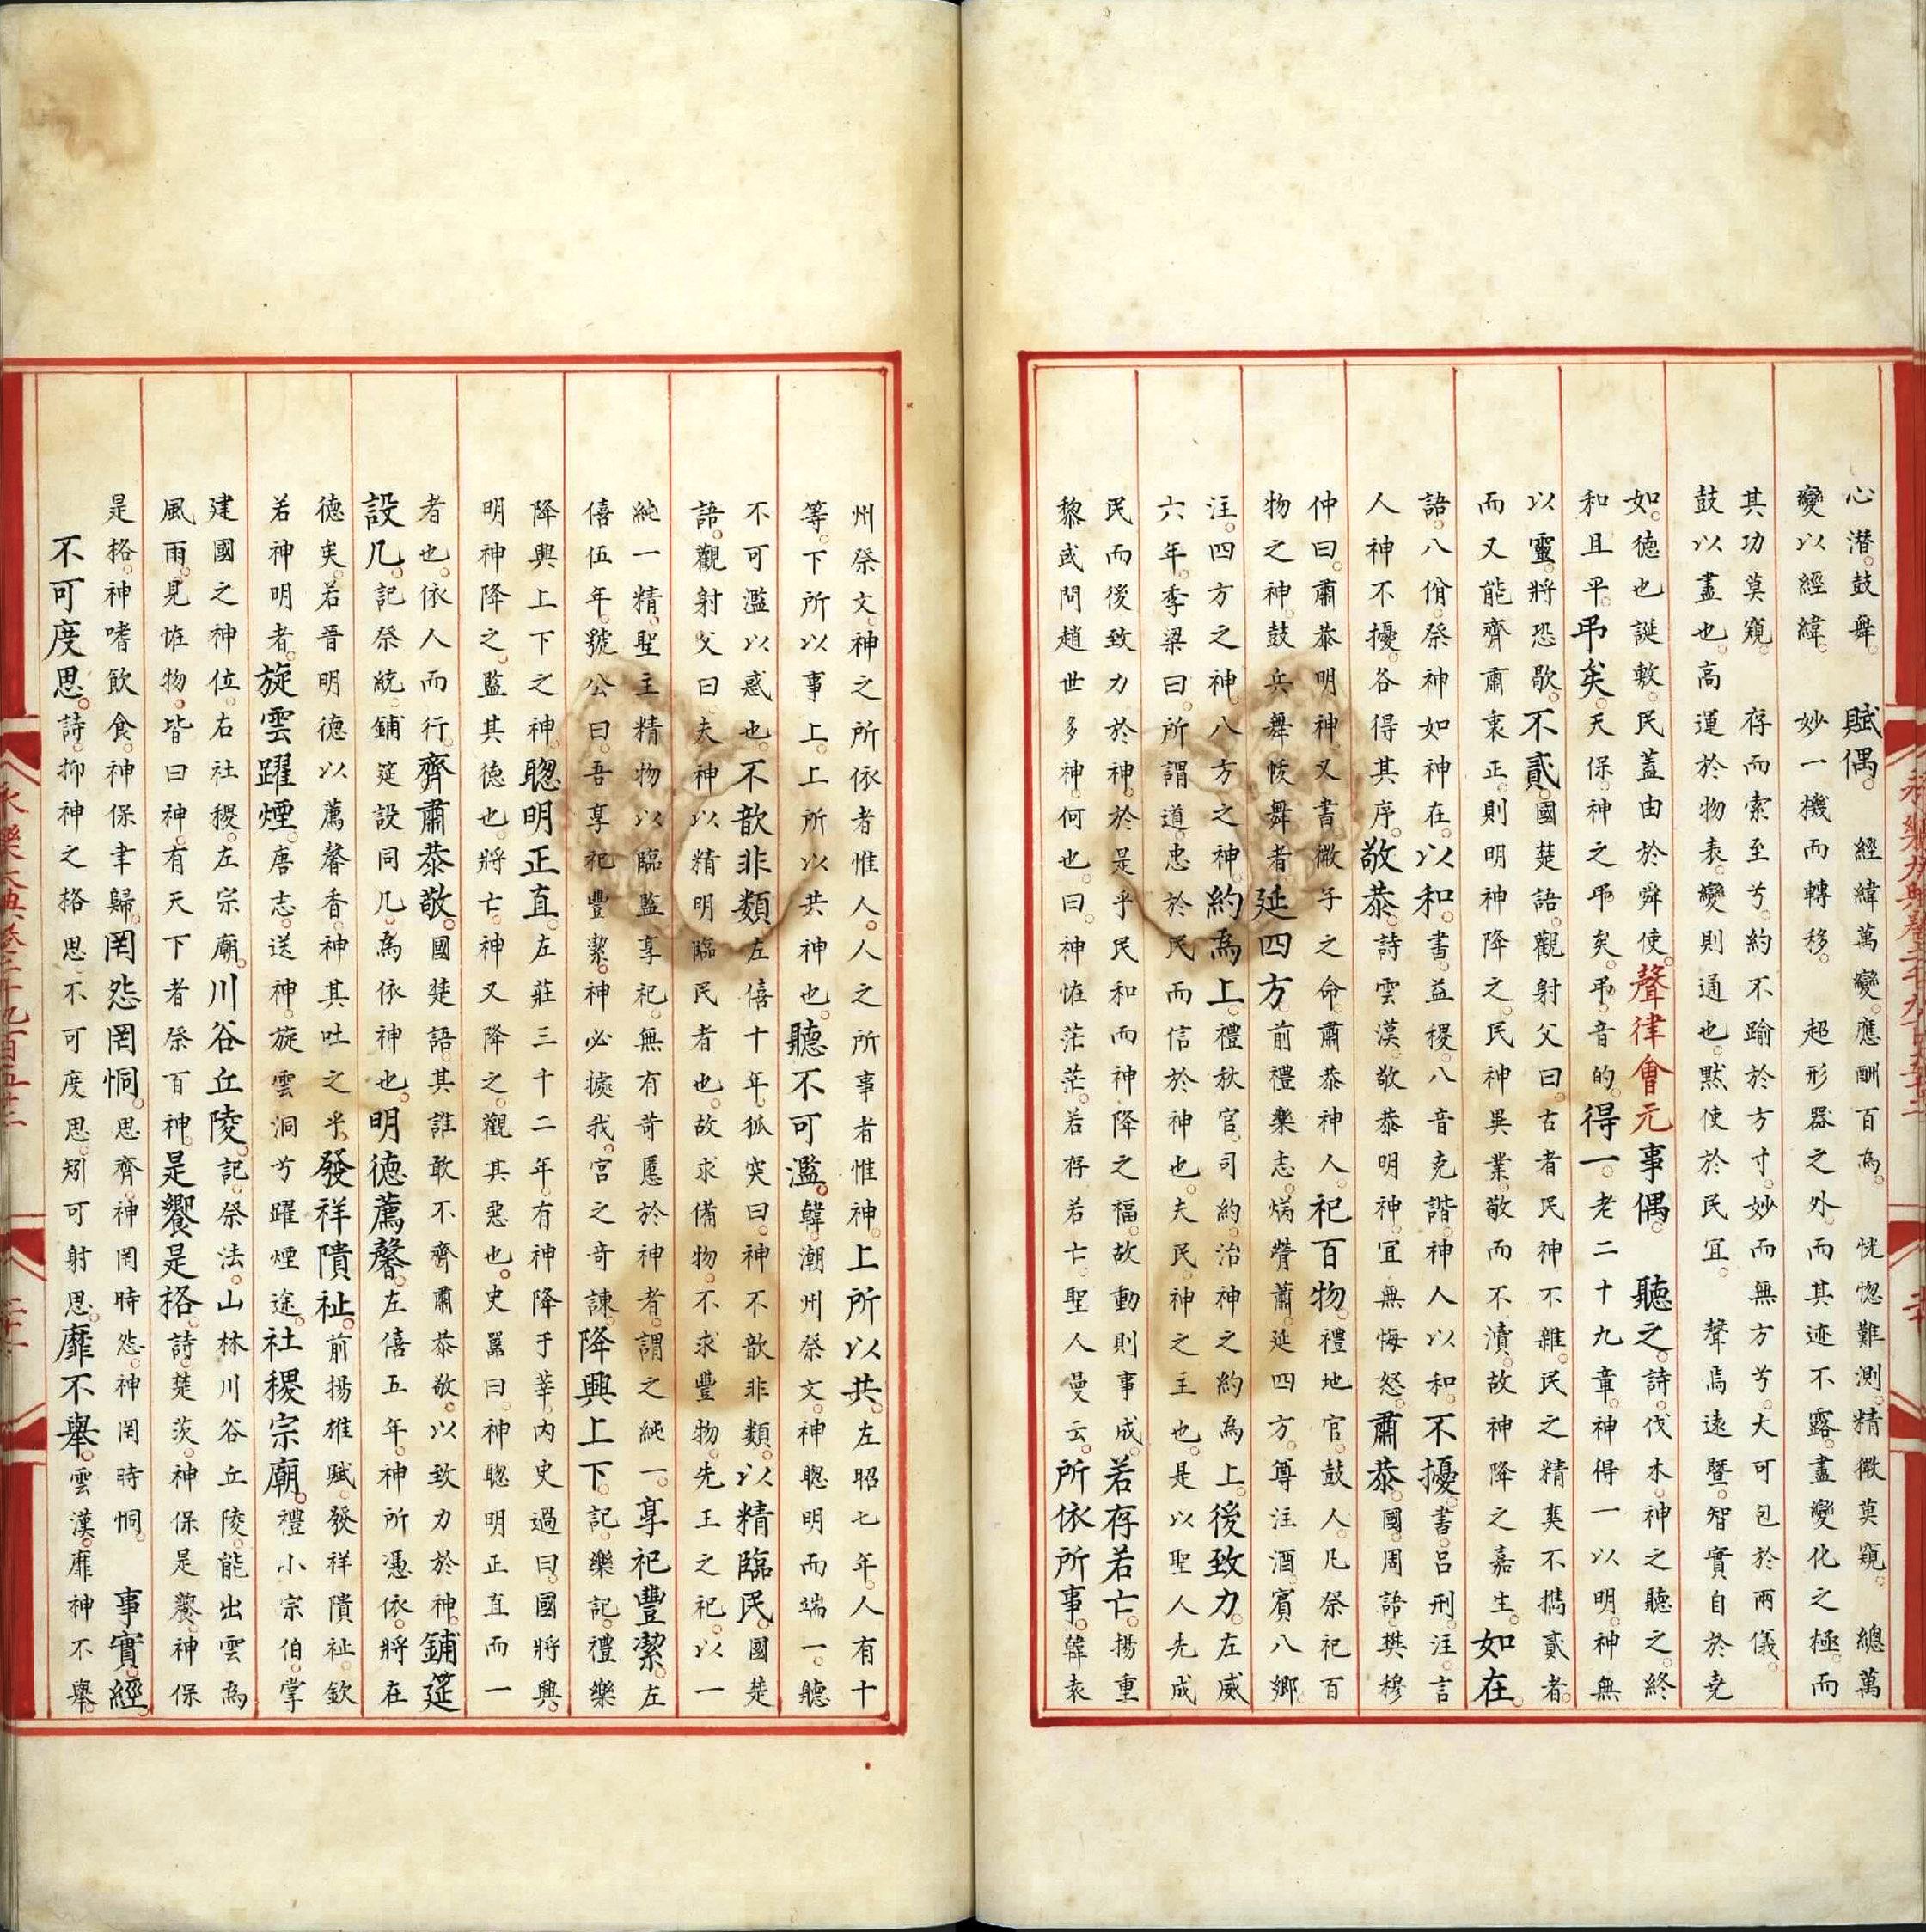 心潛。鼓舞。　賦偶。　經緯萬變。應酬百為。　恍惚難測。精微莫窺。　總萬
變以經緯。　妙一機而轉移。　超形器之外。而其迹不露。盡變化之極。而
其功莫窺。　存而索至兮。約不踰於方寸。妙而無方兮。大可包於兩儀。
鼓以盡也。高　運於物表。變則通也。默使於民宜。　聲焉遠暨。智實自於堯
如。德也誕敷。民蓋由於舜使。聲律會元事偶。　聽之。詩。伐木。神之聽之。終
和且平。弔矣。天保。神之弔矣。弔。音的。得一。老二十九章。神得一以明。神無
以靈。將恐歇。不貳。國楚語。觀射父曰。古者民神不雜。民之精爽不攜貳者。
而又能齊肅衷正。則明神降之。民神異業。敬而不瀆。故神降之嘉生。如在。
語。八佾。祭神如神在。以和。書。益稷。八音克諧。神人以和。不擾。書。呂刑。注。言
人神不擾。各得其序。敬恭。詩雲漢。敬恭明神。宜無悔怒。肅恭。國周語。樊穆
仲曰。肅恭明神。又書微子之命。肅恭神人。祀百物。禮地官。鼓人。凡祭祀百
物之神。鼓兵舞帗舞者。延四方。前禮樂志。焫膋蕭。延四方。尊注酒。賓八鄉。
注。四方之神。八方之神。約為上。禮秋官。司約。治神之約為上。後致力。左威
六年。季梁曰。所謂道。忠於民而信於神也。夫民。神之主也。是以聖人先成
民而後致力於神。於是乎民和而神降之福。故動則事成。若存若亡。揚重
黎或問趙世多神。何也。曰。神怪茫茫。若存若亡。聖人曼云。所依所事。韓袁
州祭文。神之所依者惟人。人之所事者惟神。上所以共。左昭七年。人有十
等。下所以事上。上所以共神也。聽不可濫。韓潮州祭文。神聰明而端一。聽
不可濫以惑也。不歆非類。左僖十年。狐突曰。神不歆非類。以精臨民。國楚
語。觀射父曰。夫神以精明臨民者也。故求備物。不求豐物。先王之祀。以一
純一精。聖主精物以臨監享祀。無有苛慝於神者。謂之純一。享祀豐潔。左
僖伍年。虢公曰。吾享祀豐潔。神必據我。宮之奇諫。降興上下。記。樂記。禮樂
降興上下之神。聰明正直。左莊三十二年。有神降于莘。內史過曰。國將興。
明神降之。監其德也。將亡。神又降之。觀其惡也。史嚚曰。神聰明正直而一
者也。依人而行。齊肅恭敬。國楚語。其誰敢不齊肅恭敬。以致力於神。鋪筵
設几。記祭統。鋪筵設同几。為依神也。明德薦馨。左僖五年。神所憑依。將在
德矣。若晉明德以薦馨香。神其吐之乎。發祥隤祉。前揚雄賦。發祥隤祉。欽
若神明者。旋雲躍煙。唐志。送神。旋雲洞兮躍煙途。社稷宗廟。禮小宗伯。掌
建國之神位。右社稷。左宗廟。川谷丘陵。記。祭法。山林川谷丘陵。能出雲為
風雨。見怪物。皆曰神。有天下者祭百神。是饗是格。詩。楚茨。神保是饗。神保
是格。神嗜飲食。神保聿歸。罔怨罔恫。思齊。神罔時怨。神罔時恫。　事實。經。
不可度思。詩。抑神之格思。不可度思。矧可射思。靡不舉。雲漢。靡神不舉。
永樂大典卷二千九百五十三